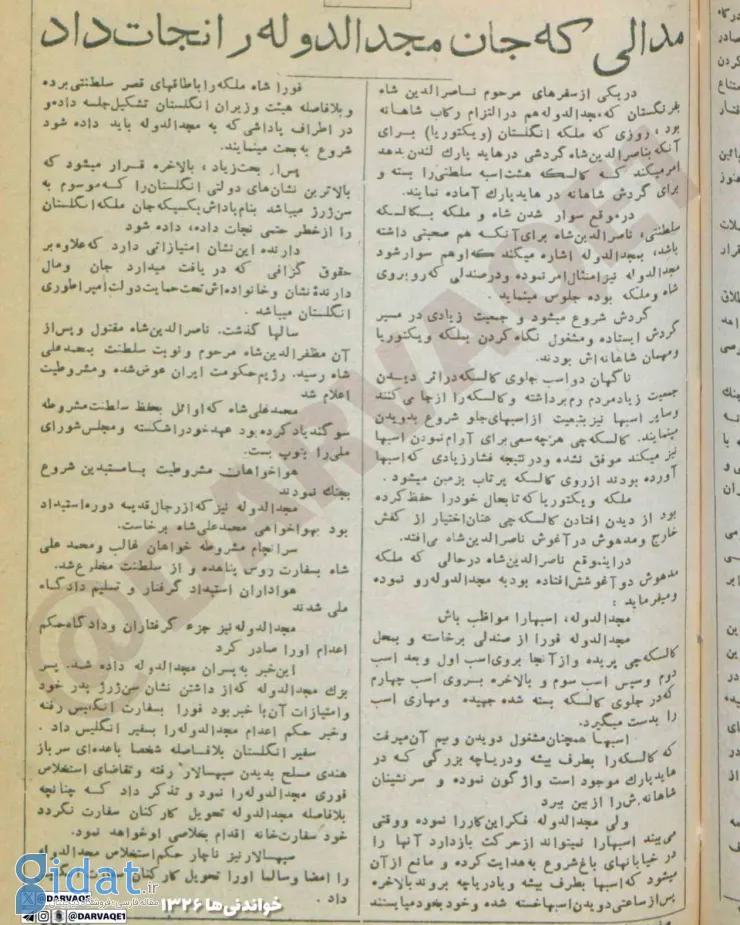 مدالی که جان مجدالدوله را نجات داد
در یکی از سفرهای مرحوم ناصرالدین شاه
بفرنگستان که مجدالدوله هم در التزام رکاب شاهانه
بود، روزی که ملکه انگلستان (ویکتوریا) برای
آنکه بناصرالدین شاه گردشی در هاید پارك لندن بدهد
امر میکند که کالسکه هشت اسبه سلطنتی را بسته و
برای گردش شاهانه در هاید پارك آماده نمایند.
در موقع سوار شدن شاه و ملکه بکالسکه
سلطنتی، ناصرالدین شاه برای آنکه هم صحبتی داشته
باشد، بمجدالدوله اشاره میکند که او هم سوار شود
مجدالدوله نیز امتثال امر نموده و در صندلی که روبروی
شاه و ملکه بوده جلوس مینماید.
گردش شروع میشود و جمعیت زیادی در مسیر
گردش ایستاده و مشغول نگاه کردن بملکه ویکتوریا
ومهمان شاهانه اش بودند.
ناگهان دو اسب جلوی کالسکه در اثر دیدن
جمعیت زیاد مردم رم برداشته و کالسکه را از جا می کنند
وسایر اسبها نیز بتبعیت از اسبهای جلو شروع بدویدن
مینمایند. کالسکه چی هرچه سعی برای آرام نمودن اسبها
نیز میکند موفق نشده و در نتیجه فشار زیادی که اسبها
آورده بودند از روی کالسکه پرتاب بزمین میشود.
ملکه ویکتوریا که تا بحال خود را حفظ کرده
بود از دیدن افتادن کالسکه چی عنان اختیار از کفش
خارج ومدهوش در آغوش ناصرالدین شاه می افتد.
در اینموقع ناصرالدین شاه در حالی که ملکه
مدهوش در آغوشش افتاده بود به مجدالدوله رو نموده
ومیفرماید:
مجدالدوله، اسبها را مواظب باش
مجدالدوله فورا از صندلی برخاسته و بمحل
کالسکه چی پریده و از آنجا بروی اسب اول و بعد اسب
دوم وسپس اسب سوم و بالاخره بروی اسب چهارم
که در جلوی کالسکه بسته شده جهیده ومهاری اسب
را بدست میگیرد.
اسبها همچنان مشغول دویدن و بیم آن میرفت
که کالسکه را بطرف بیشه ودریاچه بزرگی که در
هاید پارك موجود است واژگون نموده و سرنشینان
شاهانه اش را از بین ببرد
ولی مجدالدوله فکر این کار را نموده ووقتی
می بیند اسبها را نمیتواند از حرکت باز دارد آنها را
در خیابانهای باغ شروع به هدایت کرده و مانع از آن
میشود که اسبها بطرف بیشه و یا دریاچه بروند بالاخره
پس از ساعتی دویدن اسبها خسته شده و خود بخود میایستند
فورا شاه ملکه را باطاقهای قصر سلطنتی برده
و بلافاصله هیئت وزیران انگلستان تشکیل جلسه داده و
در اطراف پاداشی که به مجدالدوله باید داده شود
شروع به بحث مینمایند.
پس از بحث زیاد، بالاخره قرار میشود که
بالاترین نشان های دولتی انگلستان را که موسوم به
سن ژرژ میباشد بنام پاداش بکسیکه جان ملکه انگلستان
را از خطر حتمی نجات داده، داده شود
دارنده این نشان امتیازاتی دارد که علاوه بر
حقوق گزافی که دریافت میدارد جان ومال
دارنده نشان و خانواده اش تحت حمایت دولت امپراطوری
انگلستان میباشد.
سالها گذشت. ناصرالدین شاه مقتول و پس از
آن مظفرالدین شاه مرحوم و نوبت سلطنت بمحمد علی
شاه رسید. رژیم حکومت ایران عوض شده و مشروطیت
اعلام شد
محمد علی شاه که اوائل بحفظ سلطنت مشروطه
سوگند یاد کرده بود عهد خود را شکسته و مجلس شورای
ملی را بتوپ بست.
هواخواهان مشروطیت با مستبدین شروع
بجنگ نمودند
مجدالدوله نیز که از رجال قدیمه دوره استبداد
بود بهواخواهی محمد علی شاه برخاست.
سرانجام مشروطه خواهان غالب و محمد علی
شاه بسفارت روس پناهنده و از سلطنت مخلوع شد.
هواداران استبداد گرفتار و تسلیم دادگاه
ملی شدند
مجدالدوله نیز جزء گرفتاران ودادگاه حکم
اعدام اورا صادر کرد
این خبر به پسران مجدالدوله داده شد. پسر
بزرگ مجدالدوله که از داشتن نشان سن ژرژ پدر خود
وامتیازات آن باخبر بود فورا بسفارت انگلیس رفته
وخبر حکم اعدام مجدالدوله را بسفیر انگلیس داد.
سفیر انگلستان بلافاصله شخصا با عده ای سرباز
هندی مسلح بدیدن سپهسالار رفته وتقاضای استخلاص
فوری مجدالدوله را نمود و تذکر داد که چنانچه
بلافاصله مجدالدوله تحویل کارکنان سفارت نگردد
خود سفارت خانه اقدام بخلاصی او خواهد نمود.
سپهسالار نیز ناچار حکم استخلاص مجدالدوله
را امضا وسالما اورا تحویل کارکنان سفارت
داد.
خواندنی ها ۱۳۲۶
@DARVAQE1
@DARVAQE1
gidat.ir
@DARVAQE1